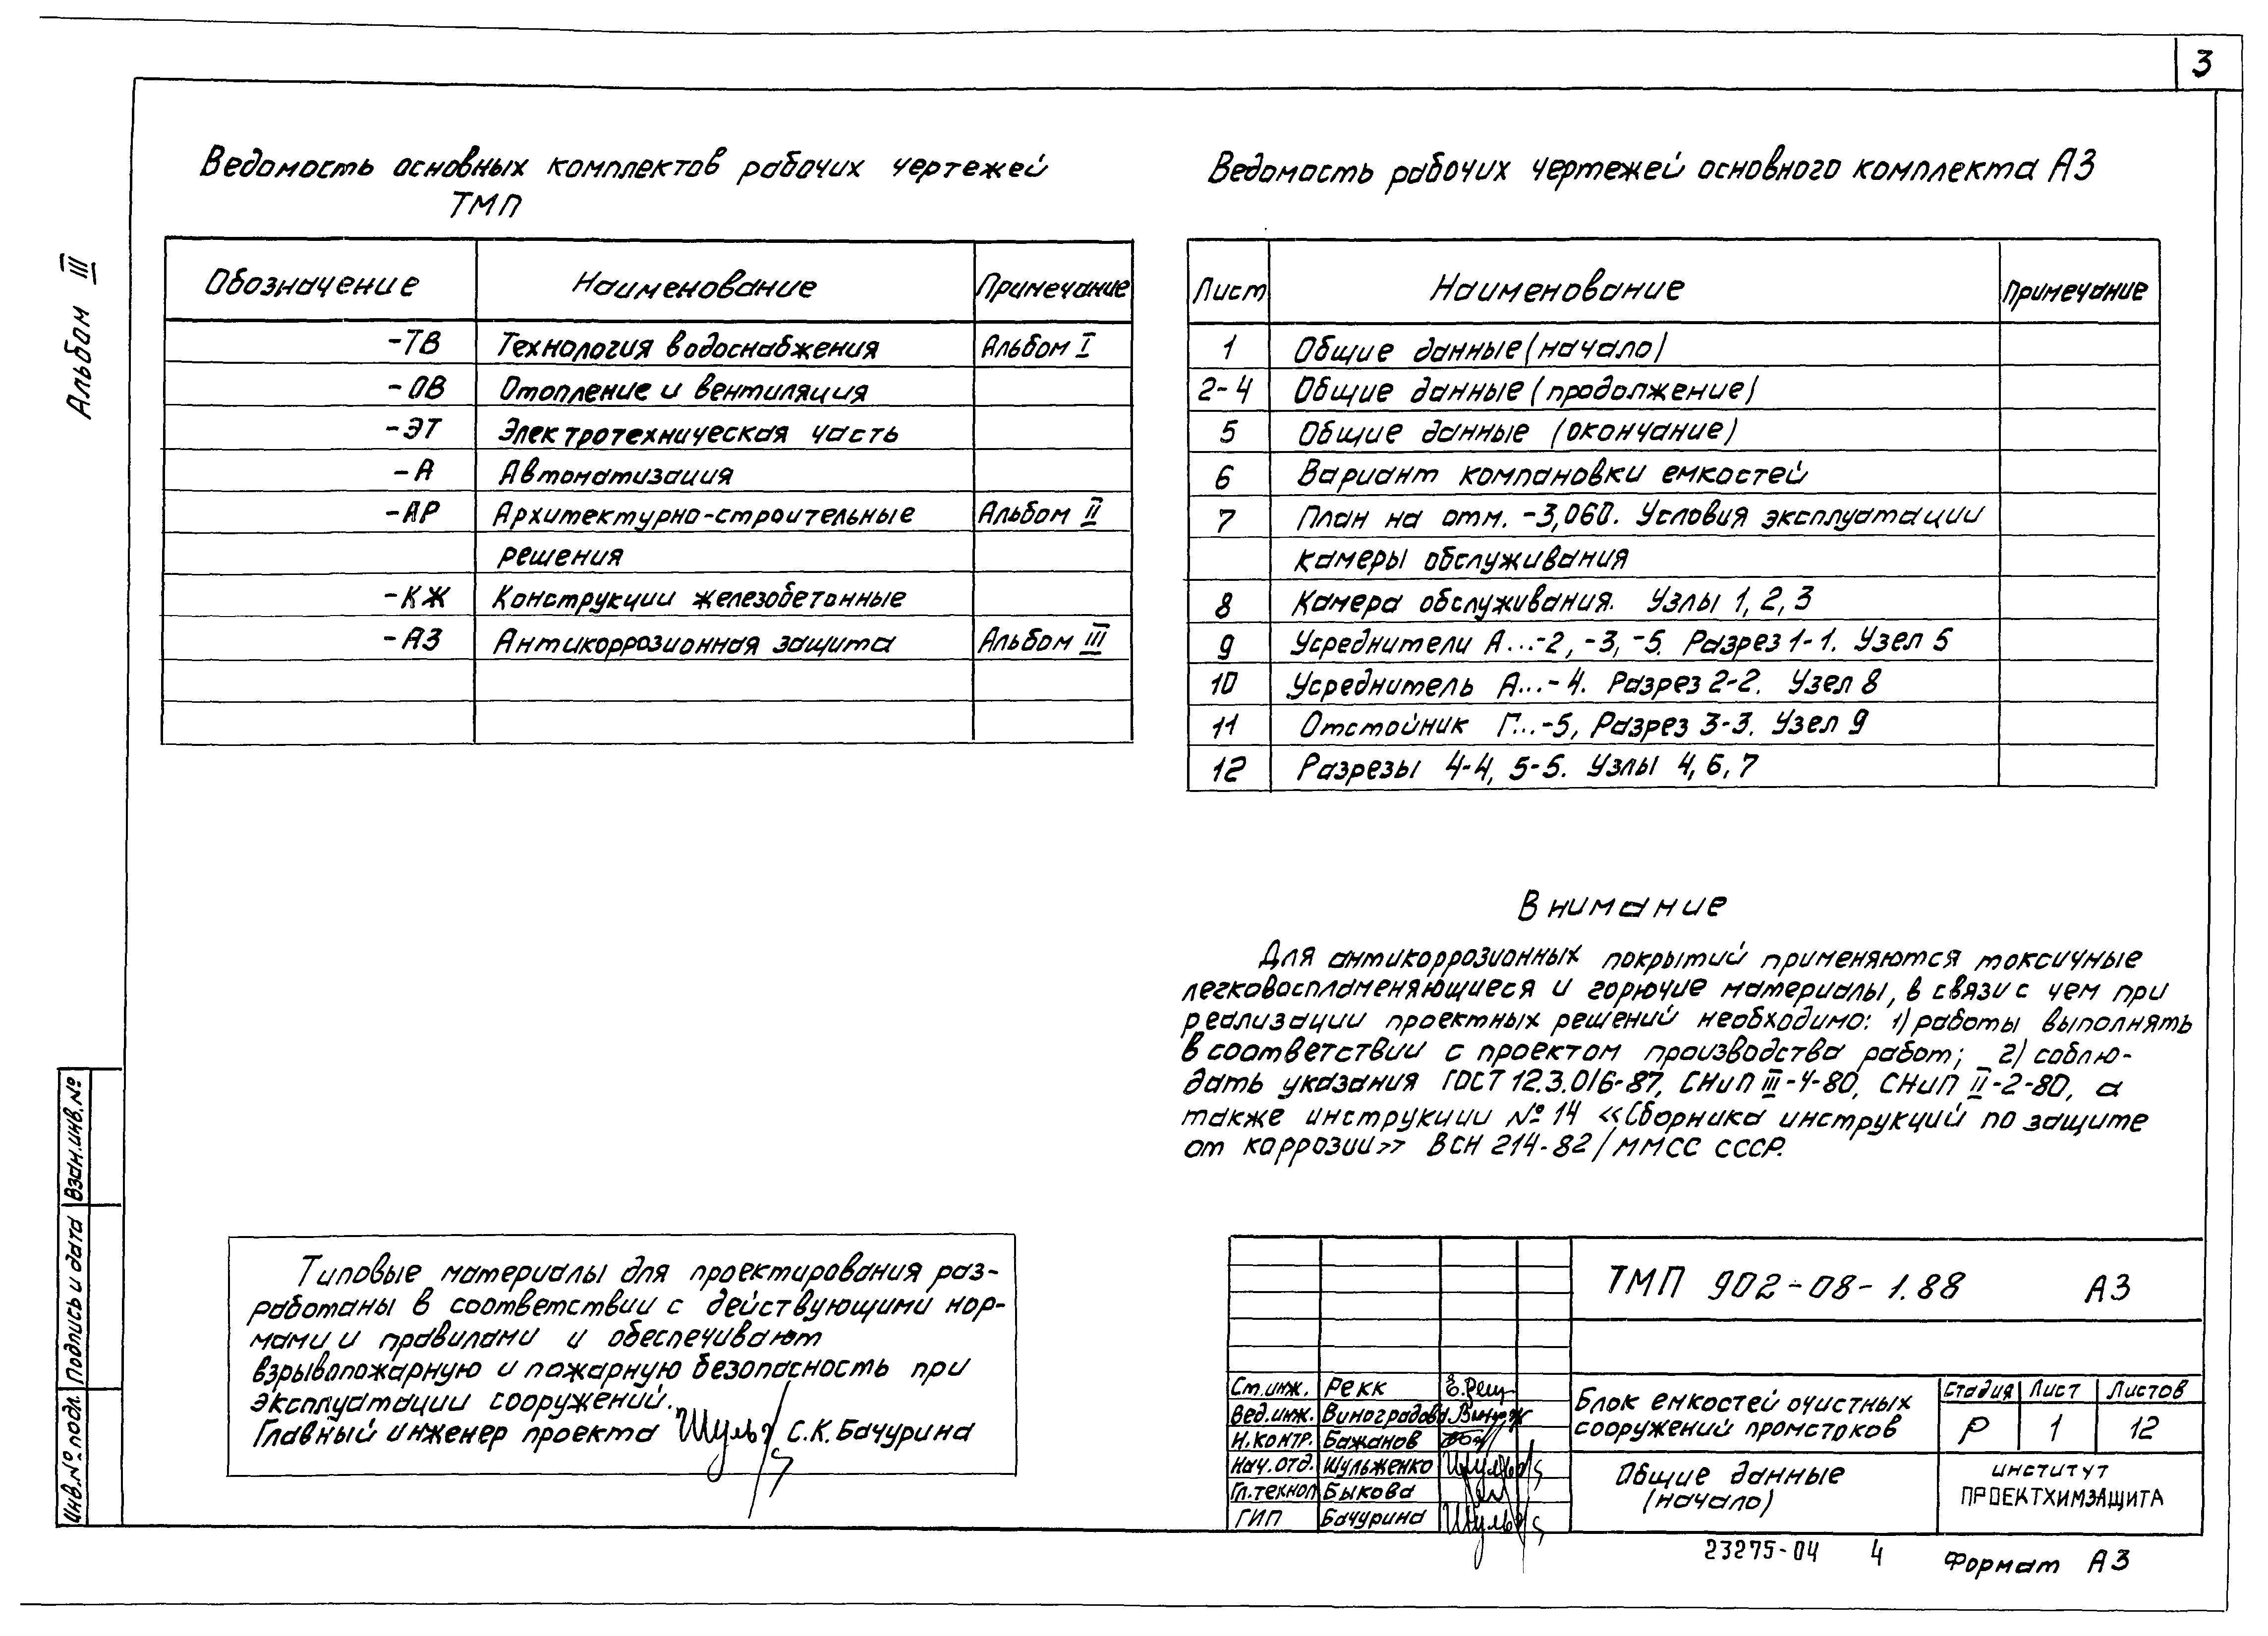 3
Альбом III
Ведомость основных комплектов рабочих чертежей
ТМП
Обозначение Наименование Примечание
-ТВ Технология водоснабжения Альбом I
-ОВ Отопление и вентиляция
-ЭТ Электротехническая часть
-А Автоматизация
-АР Архитектурно-строительные Альбом II
решения
-КЖ Конструкции железобетонные
-АЗ Антикоррозионная защита Альбом III
Ведомость рабочих чертежей основного комплекта АЗ
Лист Наименование Примечание
1 Общие данные (начало)
2-4 Общие данные (продолжение)
5 Общие данные (окончание)
6 Вариант компановки емкостей
7 План на отм. -3,060. Условия эксплуатации
камеры обслуживания
8 Камера обслуживания. Узлы 1, 2, 3
9 Усреднители А...-2, -3, -5. Разрез 1-1. Узел 5
10 Усреднитель А...-4. Разрез 2-2. Узел 8
11 Отстойник Г...-5, Разрез 3-3. Узел 9
12 Разрезы 4-4, 5-5. Узлы 4, 6, 7
Внимание
Для антикоррозионных покрытий применяются токсичные
легковоспламеняющиеся и горючие материалы, в связи с чем при
реализации проектных решений необходимо: 1) работы выполнять
в соответствии с проектом производства работ; 2) соблю-
дать указания ГОСТ 12.3.016-87, СНиП III-4-80, СНиП II-2-80, а
также инструкции № 14 «Сборника инструкций по защите
от коррозии» ВСН 214-82/ММСС СССР.
Типовые материалы для проектирования раз-
работаны в соответствии с действующими нор-
мами и правилами и обеспечивают
взрывопожарную и пожарную безопасность при
эксплуатации сооружений.
Главный инженер проекта С.К. Бачурина
Взам.инв.№
Подпись и дата
Инв.№ подл.
ТМП 902-08-1.88 АЗ
Ст.инж. Рекк
Вед.инж. Виноградова
Н.контр. Бажанов
Нач.отд. Шульженко
Гл.технол Быкова
ГИП Бачурина
Блок емкостей очистных
сооружений промстоков
Стадия Лист Листов
Р 1 12
Общие данные
(начало)
институт
ПРОЕКТХИМЗАЩИТА
23275-04 4
Формат А3